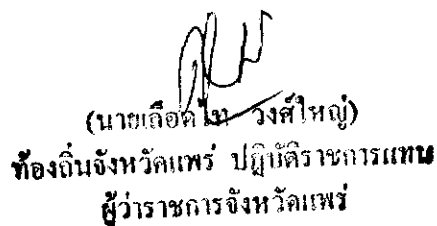 (นายเลือดไท วงศ์ใหญ่)
ท้องถิ่นจังหวัดแพร่ ปฏิบัติราชการแทน
ผู้ว่าราชการจังหวัดแพร่